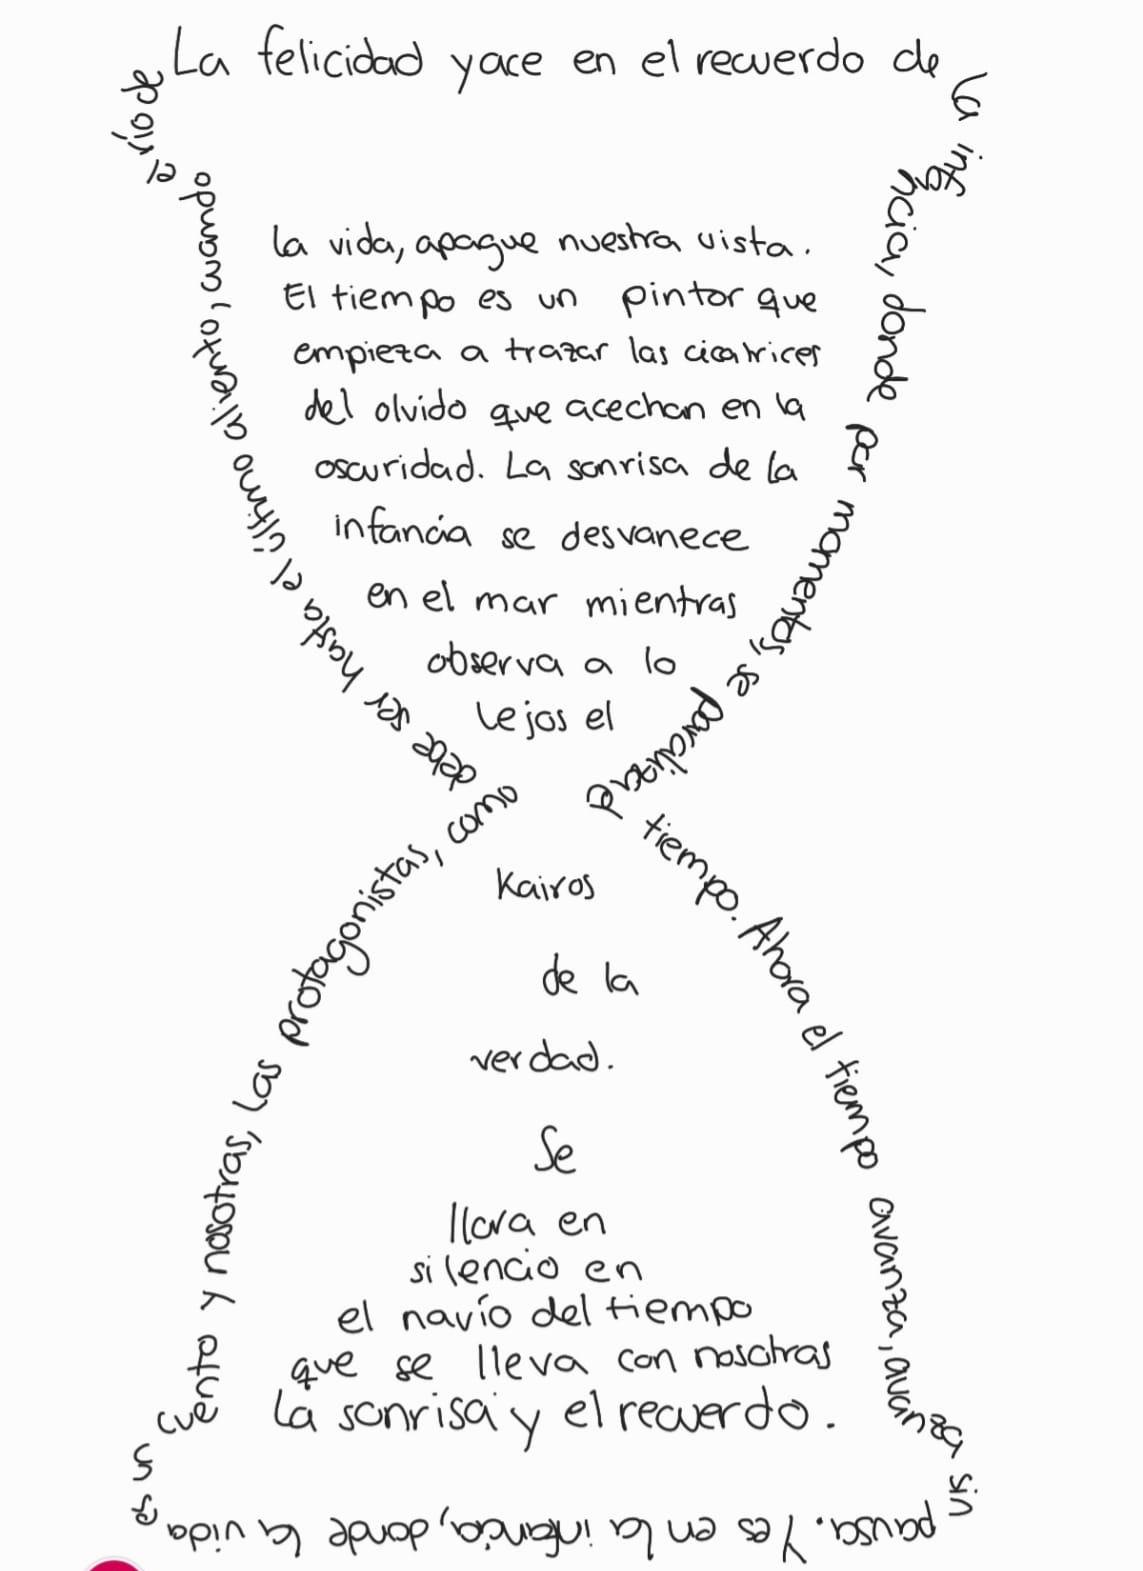 La felicidad yace en el recuerdo de
la infancia, donde por momentos, se paraliza el
tiempo. Ahora el tiempo avanza, avanza sin
pausa. Y es en la infancia, donde la vida
es un cuento y nosotras, las protagonistas, como
debe ser hasta el último aliento, cuando
el río de
la vida, apague nuestra vista.
El tiempo es un pintor que
empieza a trazar las cicatrices
del olvido que acechan en la
oscuridad. La sonrisa de la
infancia se desvanece
en el mar mientras
observa a lo
lejos el
Kairos
de la
verdad.
Se
llora en
silencio en
el navío del tiempo
que se lleva con nosotras
la sonrisa y el recuerdo.